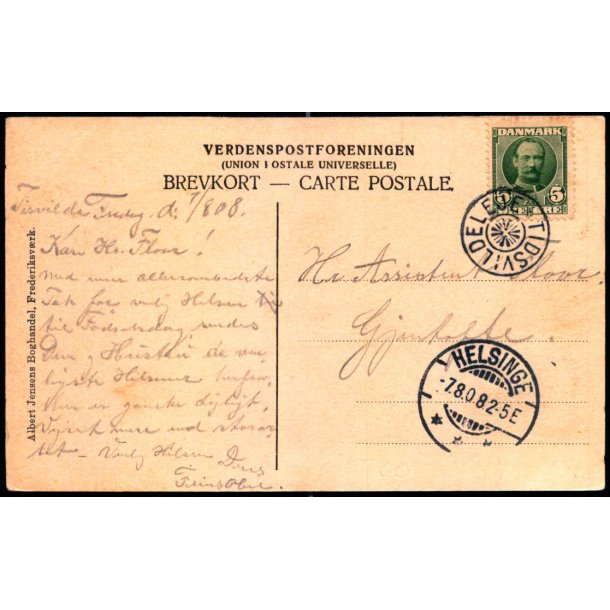 VERDENSPOSTFORENINGEN
(UNION POSTALE UNIVERSELLE)
BREVKORT — CARTE POSTALE.
DANMARK
5 5
TIDSVILDELEJE
Albert Jensens Boghandel, Frederiksværk.
Tisvilde Fredag d. 7/8 08.
Kære Hr. Floor!
Med min allerforbindtligste
Tak for venlig Hilsen
til Fødselsdag sendes
Dem og Hustru de ven
ligste Hilsener herfra,
Her er ganske dejligt,
Vejret
Venlig Hilsen
Hr. Assistent Floor
Gjentofte.
HELSINGE
7.8.08 2-5E